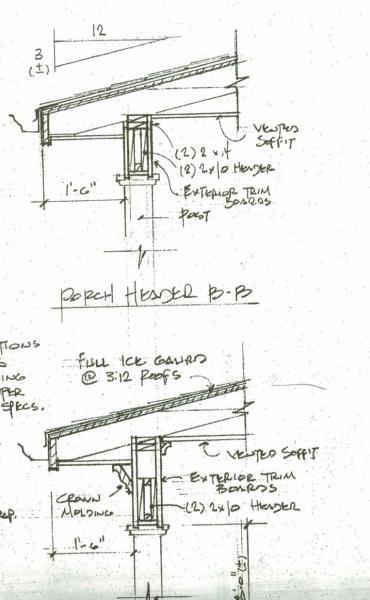 12
3
(±)
VENTED
SOFFIT
(2) 2 x 4
(2) 2x10 HEADER
EXTERIOR TRIM
BOARDS
1'-6"
POST
PORCH HEADER B-B
TIONS
FULL ICE GAURD
@ 3:12 ROOFS
ING
PER
SPECS.
VENTED SOFFIT
EXTERIOR TRIM
BOARDS
CROWN
MOLDING
(2) 2x10 HEADER
1'-6"